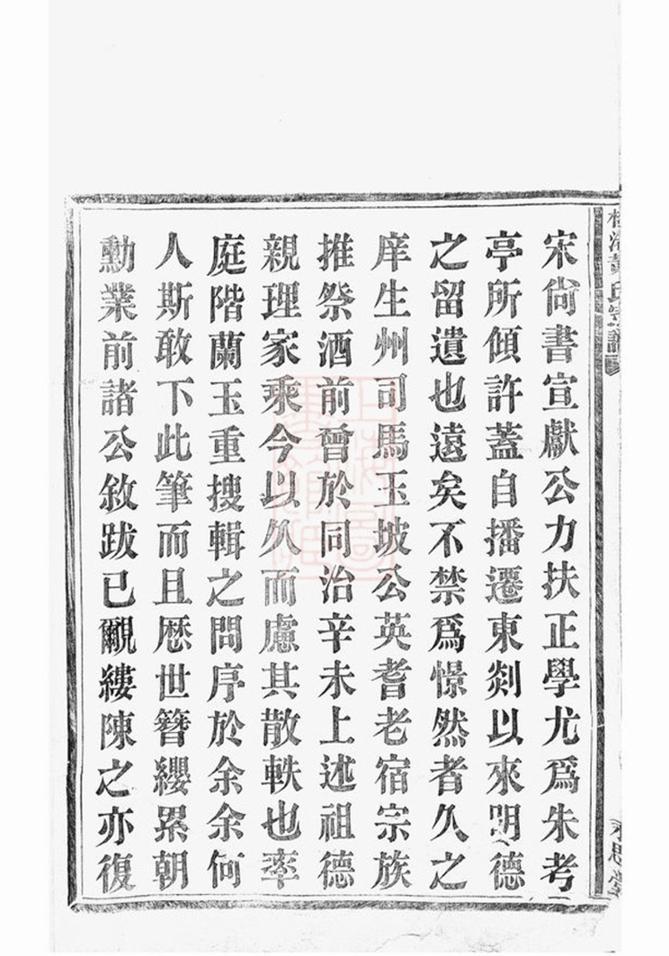 宋尙書宣獻公力扶正學尤爲朱考
亭所傾許蓋自播遷東剡以來明德
之留遺也遠矣不禁爲憬然者久之
庠生州司馬玉坡公英耆老宿宗族
推祭酒前曾於同治辛未上述祖德
親理家乘今以久而慮其散軼也率
庭階蘭玉重搜輯之問序於余余何
人斯敢下此筆而且歷世簪纓累朝
勳業前諸公敘跋已覼縷陳之亦復